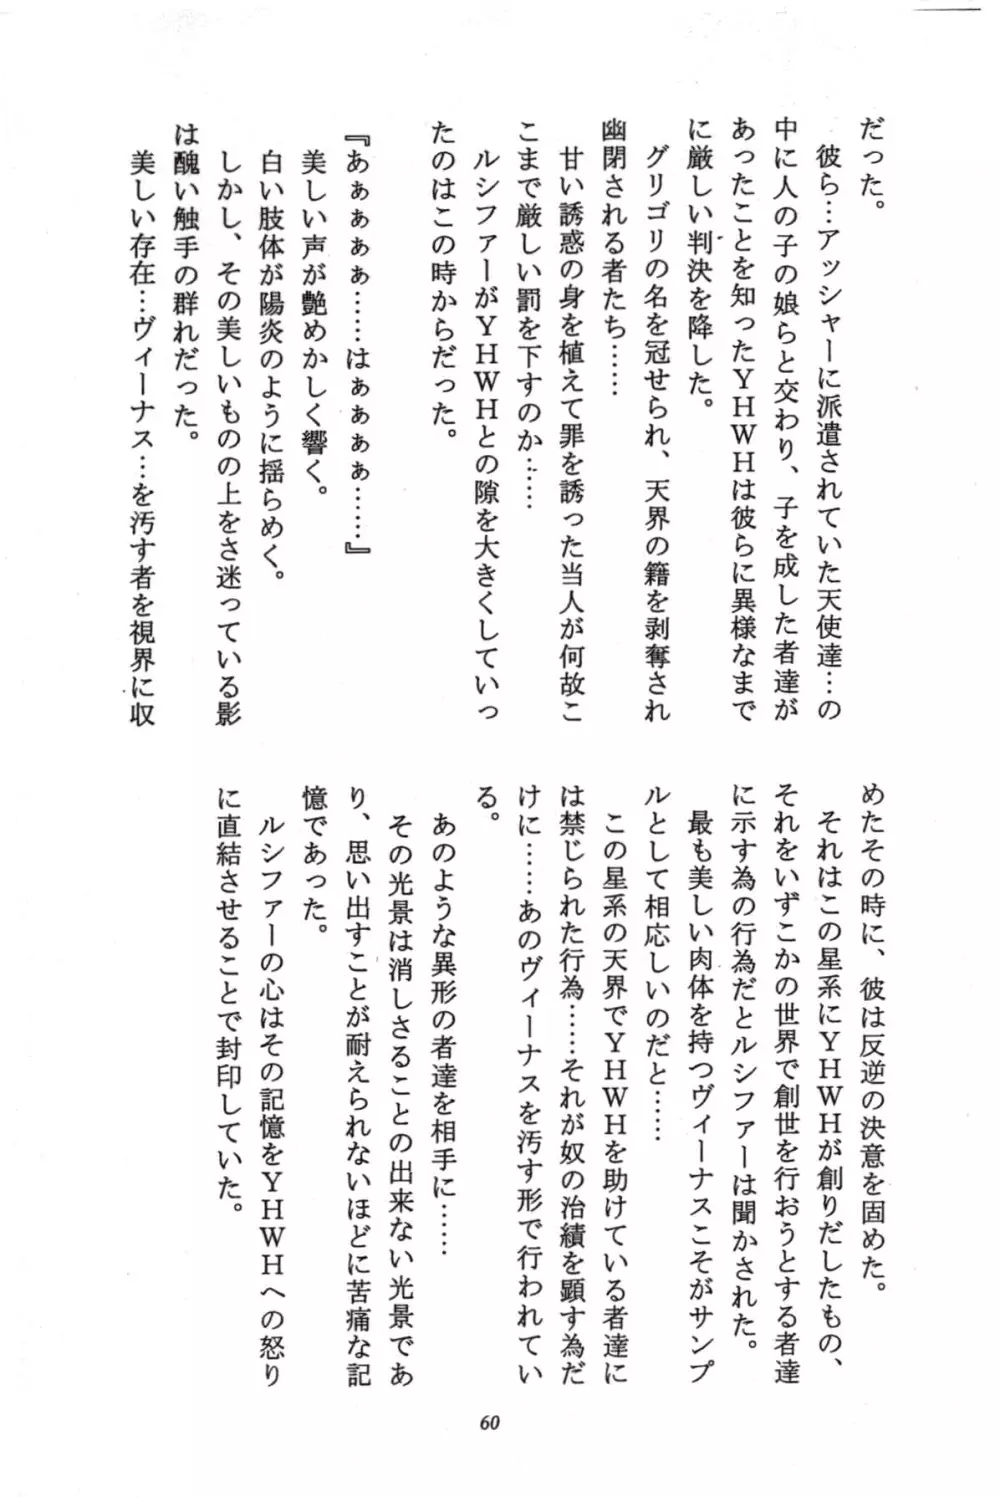 だった。
　彼ら…アッシャーに派遣されていた天使達…の
中に人の子の娘らと交わり、子を成した者達が
あったことを知ったＹＨＷＨは彼らに異様なまで
に厳しい判決を降した。
　グリゴリの名を冠せられ、天界の籍を剥奪され
幽閉される者たち……
　甘い誘惑の身を植えて罪を誘った当人が何故こ
こまで厳しい罰を下すのか……
　ルシファーがＹＨＷＨとの隙を大きくしていっ
たのはこの時からだった。
『あぁぁぁぁ……はぁぁぁぁ……』
　美しい声が艶めかしく響く。
　白い肢体が陽炎のように揺らめく。
　しかし、その美しいものの上をさ迷っている影
は醜い触手の群れだった。
　美しい存在…ヴィーナス…を汚す者を視界に収
めたその時に、彼は反逆の決意を固めた。
　それはこの星系にＹＨＷＨが創りだしたもの、
それをいずこかの世界で創世を行おうとする者達
に示す為の行為だとルシファーは聞かされた。
　最も美しい肉体を持つヴィーナスこそがサンプ
ルとして相応しいのだと……
　この星系の天界でＹＨＷＨを助けている者達に
は禁じられた行為……それが奴の治績を顕す為だ
けに……あのヴィーナスを汚す形で行われてい
る。
　あのような異形の者達を相手に……
　その光景は消しさることの出来ない光景であ
り、思い出すことが耐えられないほどに苦痛な記
憶であった。
　ルシファーの心はその記憶をＹＨＷＨへの怒り
に直結させることで封印していた。
60